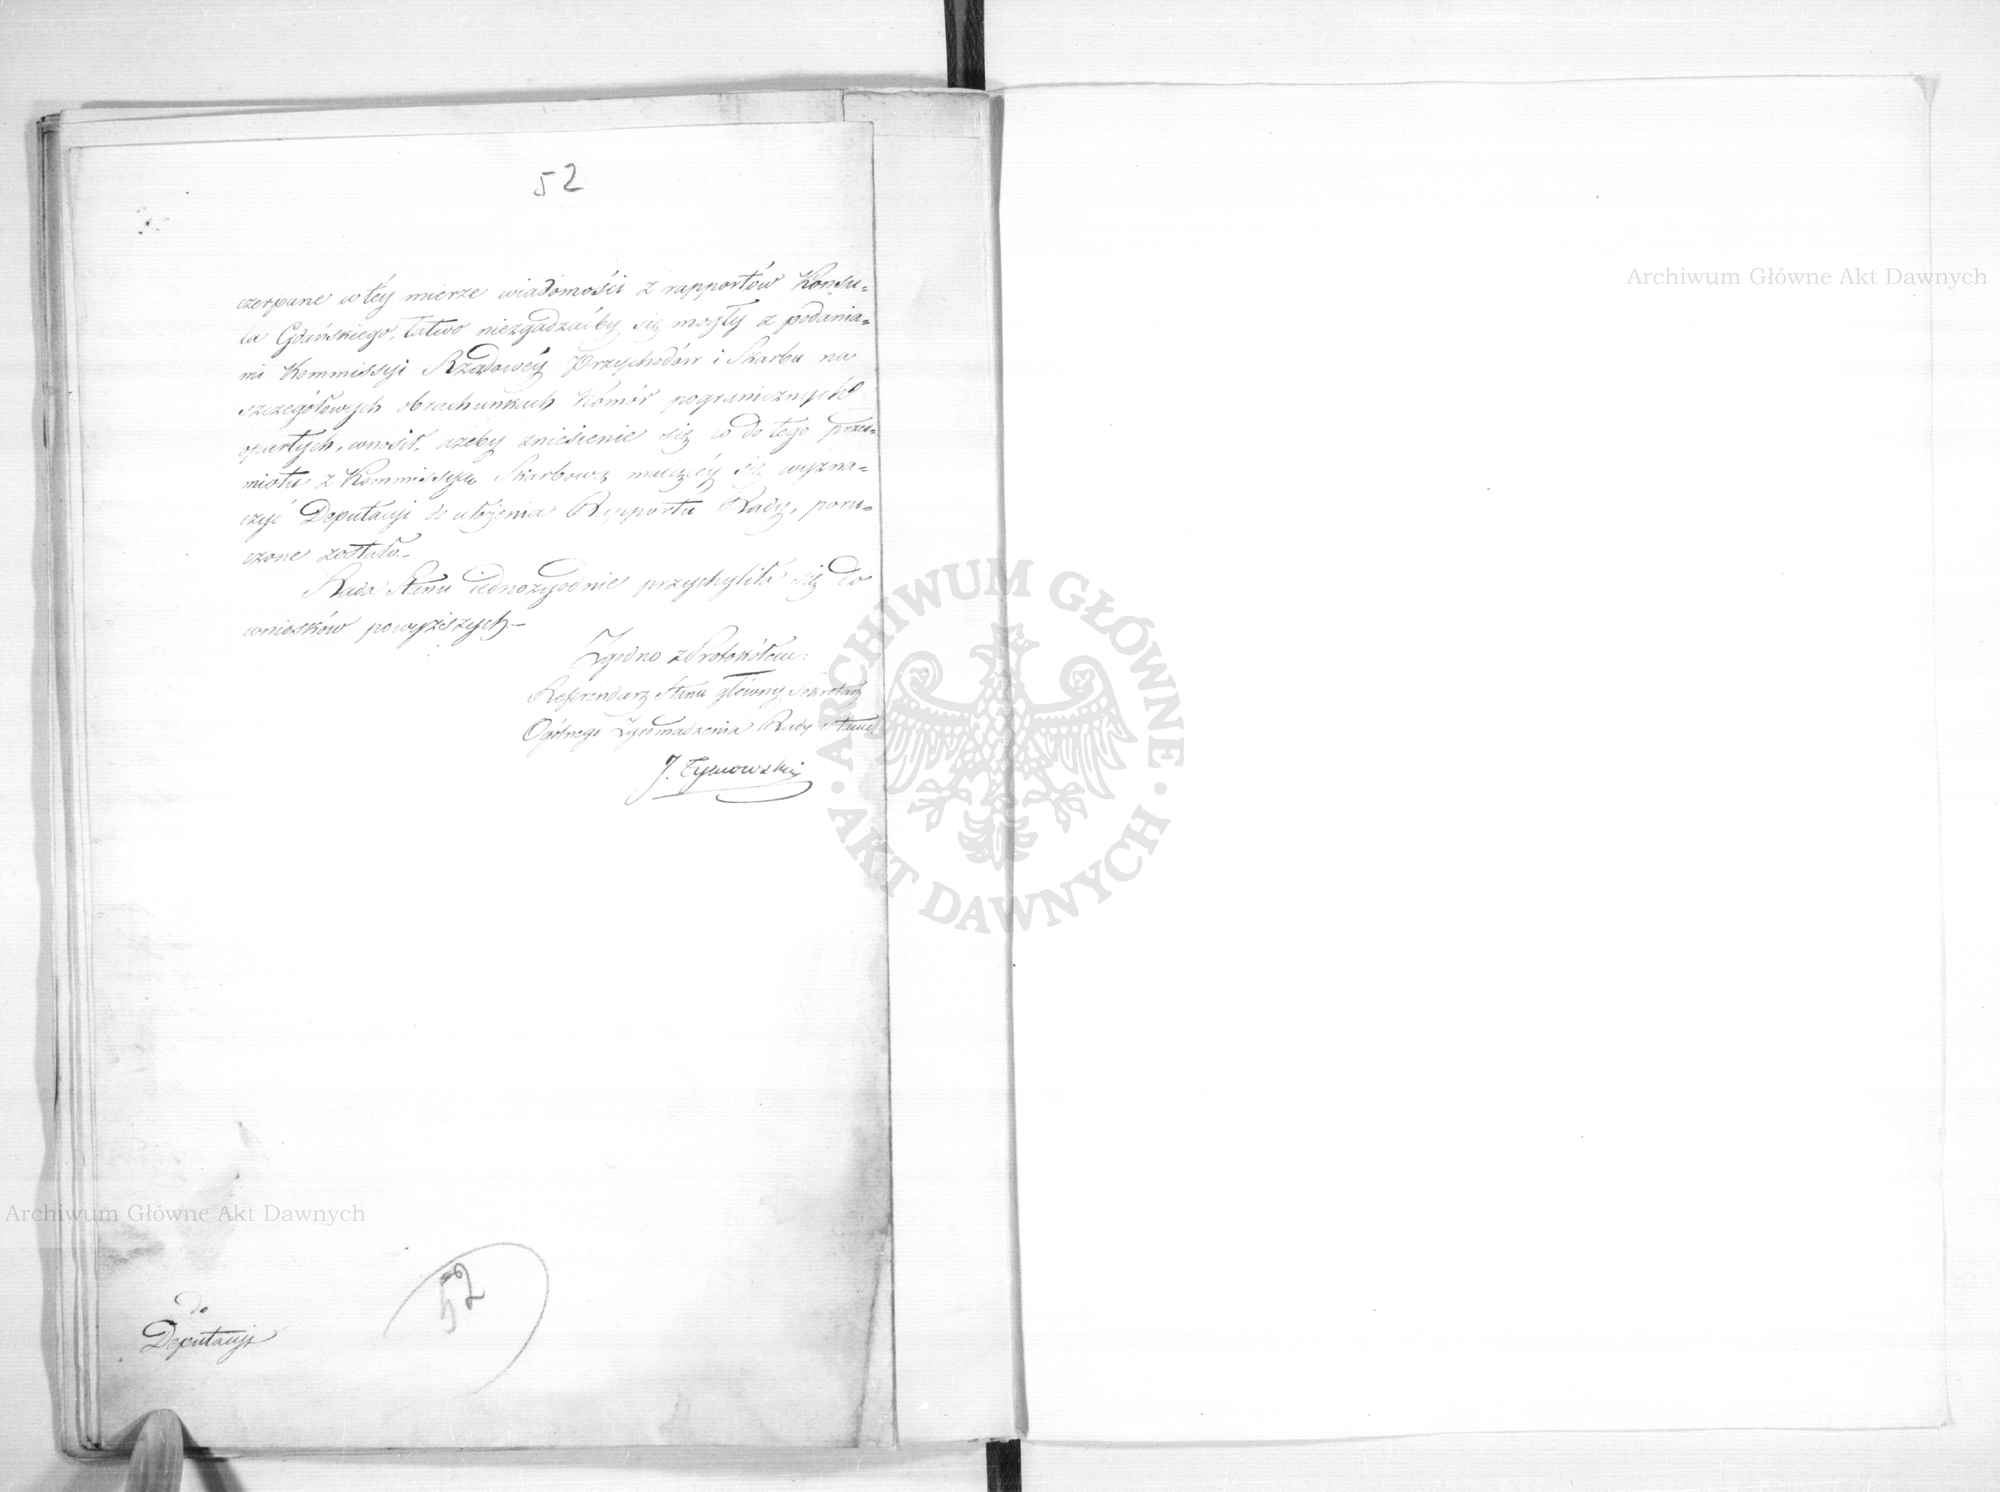 52
czerpane w téy mierze wiadomości z rapportów Konsu-
la Gdańskiego, łatwo niezgadzaćby się mogły z podania-
mi Kommissyi Rządowéy Przychodów i Skarbu na
szczegółowych obrachunkach Komór pogranicznych
opartych, wnosił, ażeby zniesienie się co do tego przed-
miotu z Kommissyą Skarbową maiącéy się wyzna-
czyć Deputacyi do ułożenia Rapportu Rady, poru-
czone zostało.
Rada Stanu iednozgodnie przychyliła się do
wniosków powyższych.
Zgodno z Protokółem:
Referendarz Stanu główny Sekretarz
Ogólnego Zgromadzenia Rady Stanu
J. Tymowski
do
Deputacyi
52
Archiwum Główne Akt Dawnych
Archiwum Główne Akt Dawnych
ARCHIWUM GŁÓWNE
AKT DAWNYCH